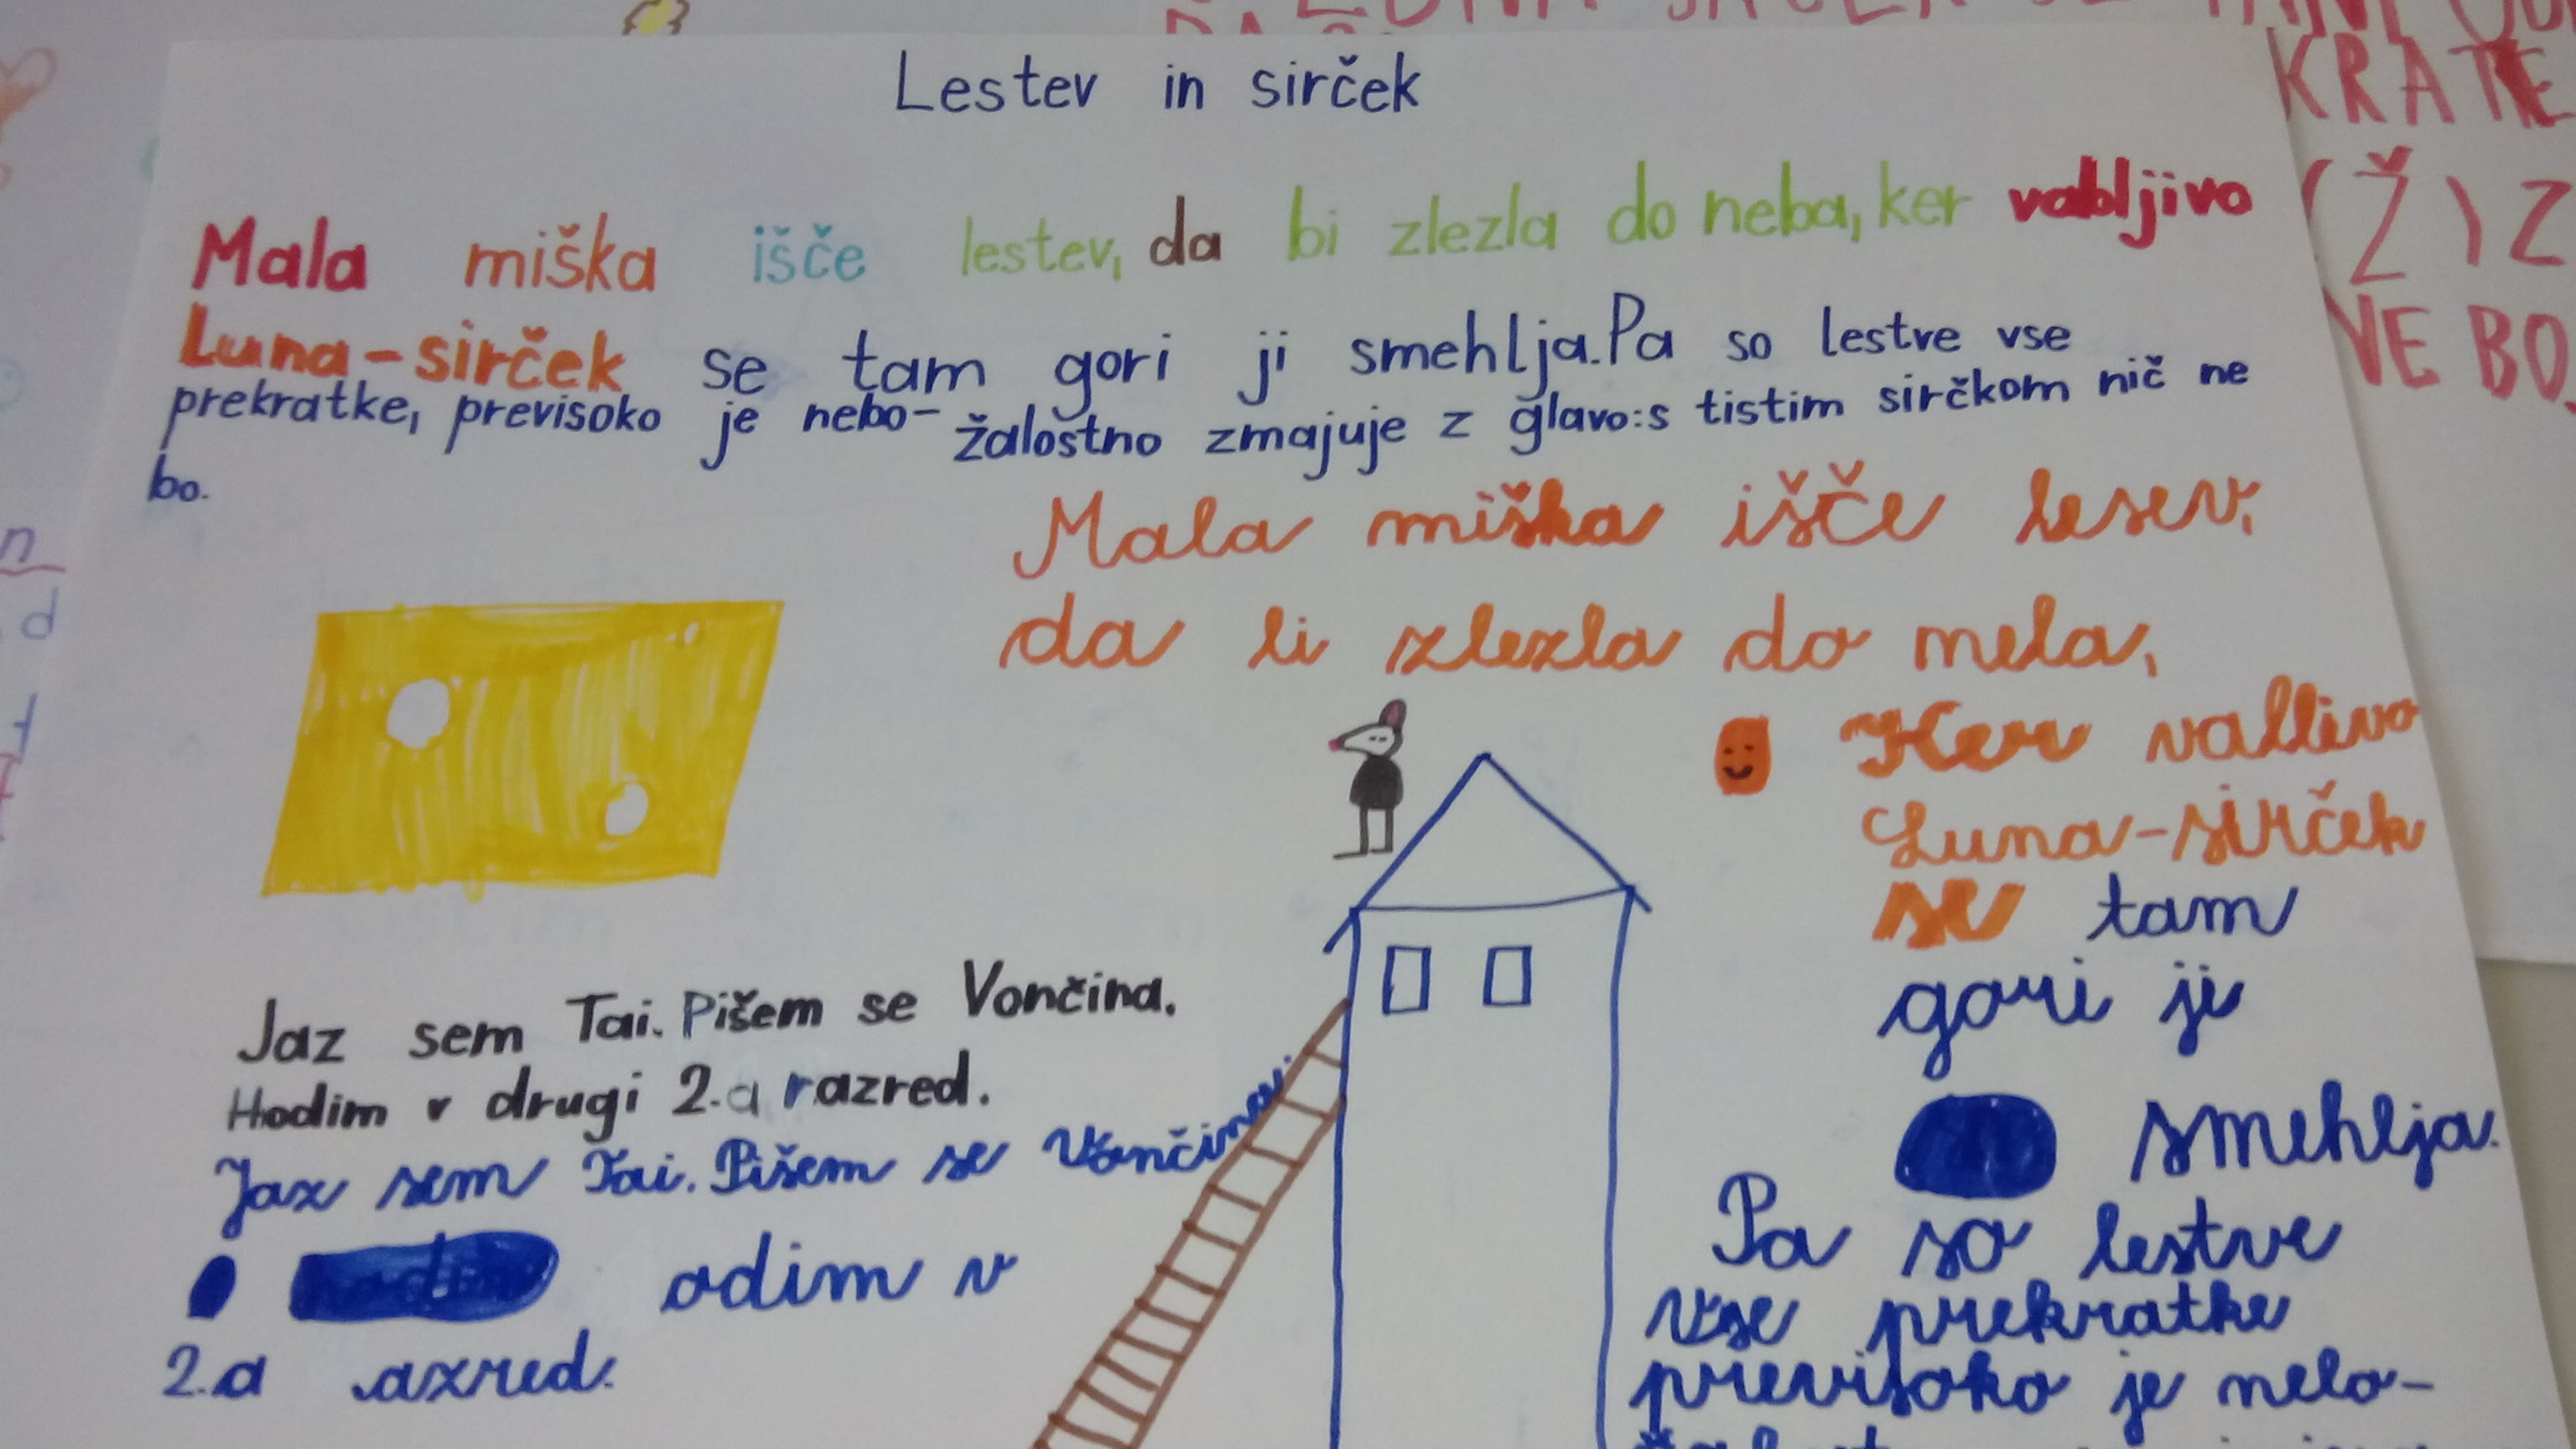 Lestev in sirček
Mala miška išče lestev, da bi zlezla do neba, ker vabljivo
Luna-sirček se tam gori ji smehlja. Pa so lestve vse
prekratke, previsoko je nebo- žalostno zmajuje z glavo: s tistim sirčkom nič ne
bo.
Mala miška išče lesev,
da bi zlezla do neba,
Ker vabljivo
Luna-sirček
se tam
gori ji
smehlja.
Pa so lestve
vse prekratke
previsoko je nebo-
Jaz sem Tai. Pišem se Vončina.
Hodim v drugi 2.a razred.
Jaz sem Tai. Pišem se Vončina.
odim v
2.a razred.
KRATE
(Ž) Z
NE BO.